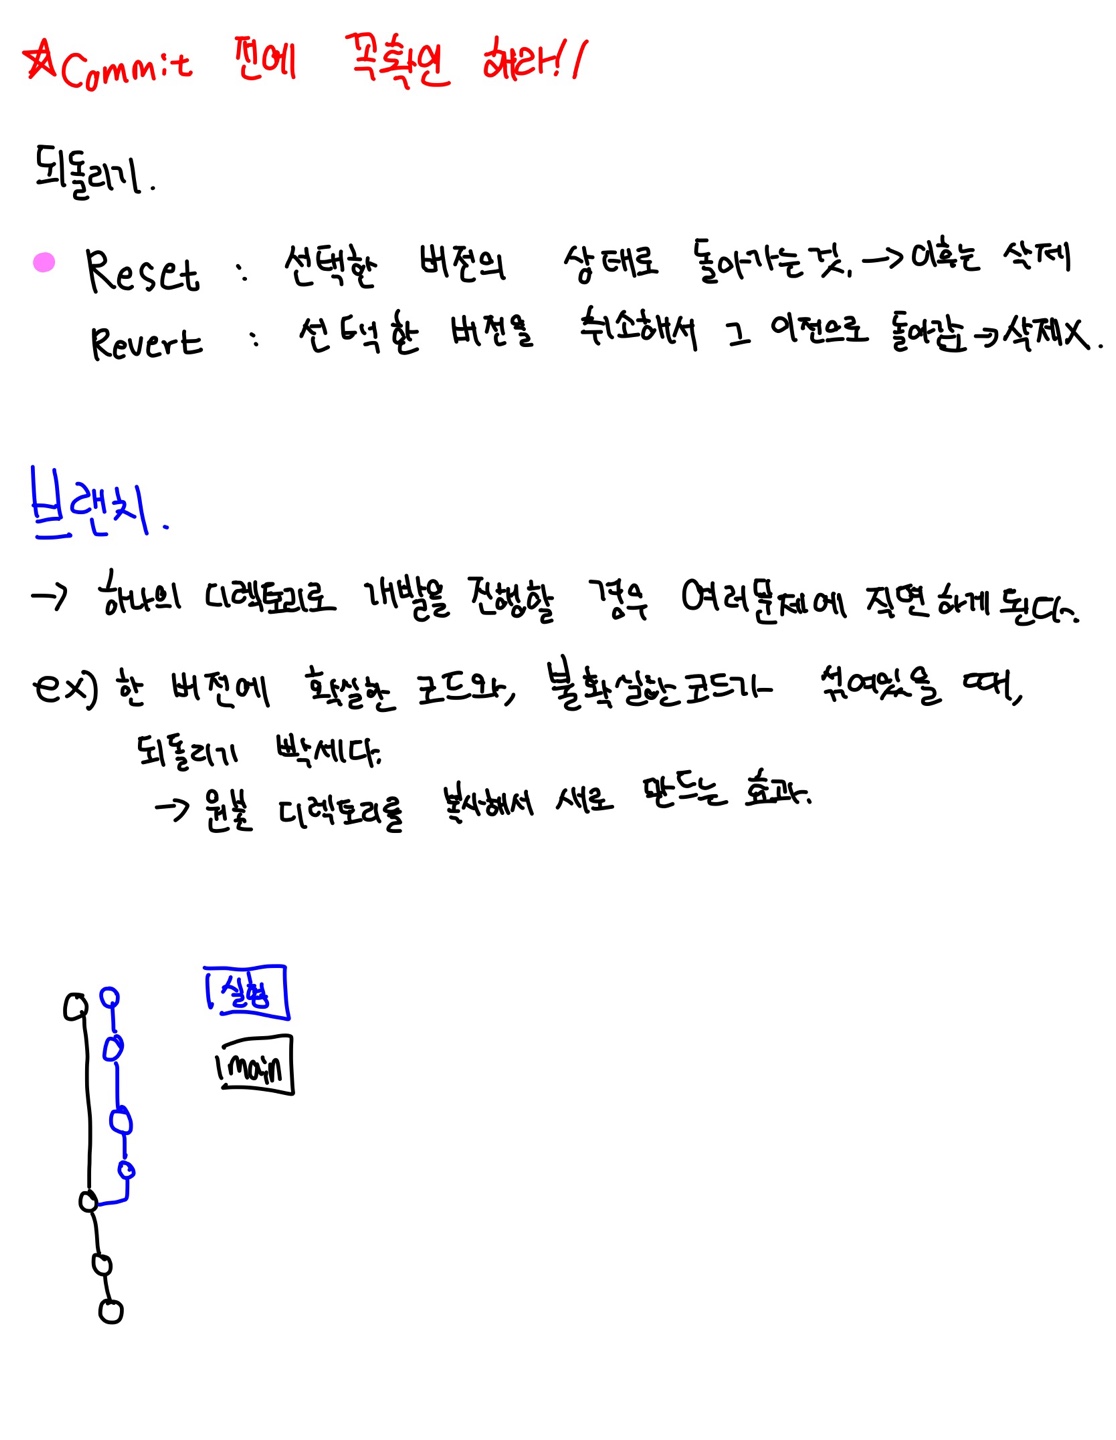 ☆Commit 전에 꼭확인 해라!!
되돌리기.
Reset : 선택한 버전의 상태로 돌아가는것. → 이후는 삭제
Revert : 선택한 버전을 취소해서 그 이전으로 돌아감 → 삭제X.
브랜치.
→ 하나의 디렉토리로 개발을 진행할 경우 여러문제에 직면하게 된다.
ex) 한 버전에 확실한 코드와, 불확실한코드가 섞여있을 때,
되돌리기 빡세다.
→ 원본 디렉토리를 복사해서 새로 만드는 효과.
실험
main